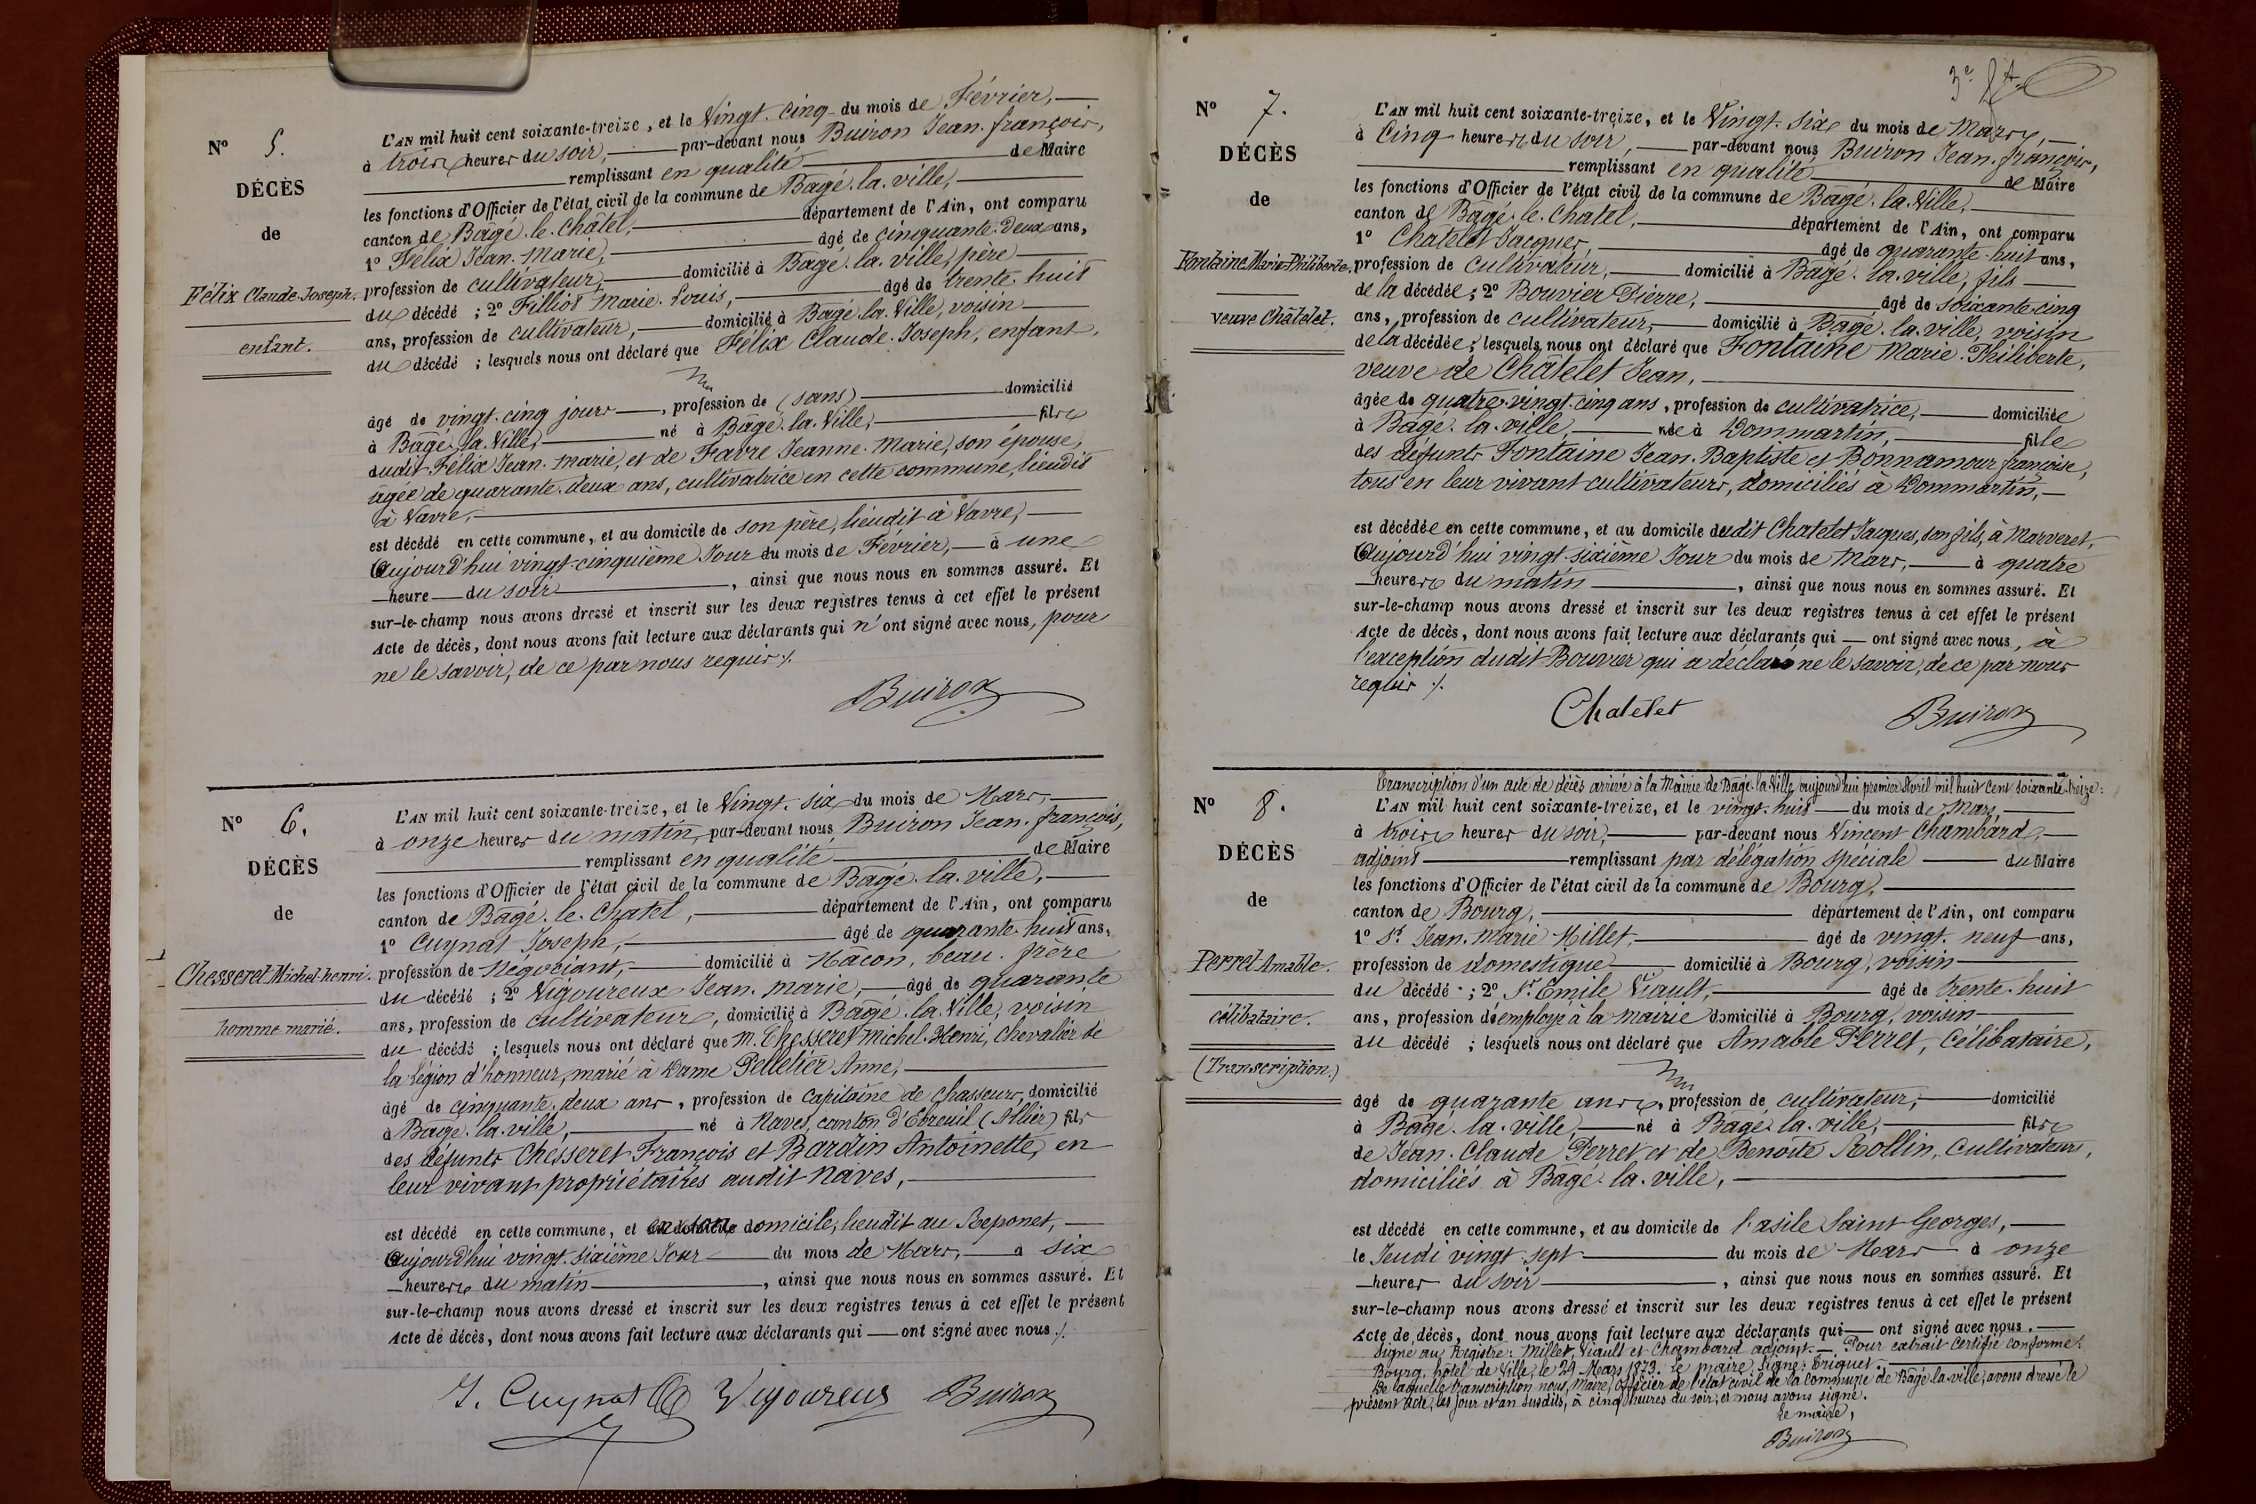 N° 5.
DÉCÈS
de
Félix Claude-Joseph.
enfant.
L'AN mil huit cent soixante-treize, et le Vingt-cinq du mois de Février,
à trois heures du soir, par-devant nous Buiron Jean-françois,
remplissant en qualité de Maire
les fonctions d'Officier de l'état civil de la commune de Bâgé-la-ville,
canton de Bâgé-le-Châtel, département de l'Ain, ont comparu
1° Félix Jean-Marie, âgé de cinquante-deux ans,
profession de cultivateur, domicilié à Bâgé-la-ville, père
du décédé ; 2° Filliot Marie-Louis, âgé de trente-huit
ans, profession de cultivateur, domicilié à Bâgé-la-Ville, voisin
du décédé ; lesquels nous ont déclaré que Félix Claude-Joseph, enfant,
âgé de vingt-cinq jours, profession de (sans) domicilié
à Bâgé-la-Ville, né à Bâgé-la-Ville, fils
dudit Félix Jean-Marie, et de Favre Jeanne-Marie, son épouse,
âgée de quarante-deux ans, cultivatrice en cette commune, lieudit
à Vavre,
est décédé en cette commune, et au domicile de son père, lieudit à Vavre,
Aujourd'hui vingt-cinquième Jour du mois de Février, à une
heure du soir, ainsi que nous nous en sommes assuré. Et
sur-le-champ nous avons dressé et inscrit sur les deux registres tenus à cet effet le présent
Acte de décès, dont nous avons fait lecture aux déclarants qui n'ont signé avec nous, pour
ne le savoir, de ce par nous requis ./.
Buiron
N° 6.
DÉCÈS
de
Chesseret Michel-henri.
homme marié.
L'AN mil huit cent soixante-treize, et le Vingt-six du mois de Mars,
à onze heures du matin, par-devant nous Buiron Jean-françois,
remplissant en qualité de Maire
les fonctions d'Officier de l'état civil de la commune de Bâgé-la-ville,
canton de Bâgé-le-Chatel, département de l'Ain, ont comparu
1° Cuynat Joseph, âgé de quarante-huit ans,
profession de Négociant, domicilié à Mâcon, beau-frère
du décédé ; 2° Vigoureux Jean-marie, âgé de quarante
ans, profession de cultivateur, domicilié à Bâgé-la-Ville, voisin
du décédé ; lesquels nous ont déclaré que M. Chesseret Michel-Henri, Chevalier de
la légion d'honneur, marié à Dame Pelletier Anne,
âgé de cinquante-deux ans, profession de Capitaine de chasseurs, domicilié
à Bâgé-la-ville, né à Naves, canton d'Ebreuil (Allier) fils
des défunts Chesseret François et Bardin Antoinette, en
leur vivant propriétaires audit Naves,
est décédé en cette commune, et en son domicile, lieudit au Reponet,
Aujourd'hui vingt-sixième Jour du mois de Mars, à six
heures du matin, ainsi que nous nous en sommes assuré. Et
sur-le-champ nous avons dressé et inscrit sur les deux registres tenus à cet effet le présent
Acte de décès, dont nous avons fait lecture aux déclarants qui ont signé avec nous ./.
J. Cuynat Vigoureux Buiron
N° 7.
DÉCÈS
de
Fontaine Marie-Philiberte,
veuve Châtelet.
L'AN mil huit cent soixante-treize, et le Vingt-six du mois de Mars,
à Cinq heures du soir, par-devant nous Buiron Jean-françois,
remplissant en qualité de Maire
les fonctions d'Officier de l'état civil de la commune de Bâgé-la-Ville,
canton de Bâgé-le-Chatel, département de l'Ain, ont comparu
1° Chatelet Jacques, âgé de quarante-huit ans,
profession de cultivateur, domicilié à Bâgé-la-ville, fils
de la décédée ; 2° Bouvier Pierre, âgé de soixante-cinq
ans, profession de cultivateur, domicilié à Bâgé-la-ville, voisin
de la décédée ; lesquels nous ont déclaré que Fontaine Marie-Philiberte,
veuve de Châtelet Jean,
âgée de quatre-vingt-cinq ans, profession de cultivatrice, domiciliée
à Bâgé-la-ville, née à Dommartin, fille
des défunts Fontaine Jean-Baptiste et Bonnamour françoise,
tous en leur vivant cultivateurs, domiciliés à Dommartin,
est décédée en cette commune, et au domicile dudit Chatelet Jacques, son fils, à Marveret,
Aujourd'hui vingt-sixième Jour du mois de Mars, à quatre
heures du matin, ainsi que nous nous en sommes assuré. Et
sur-le-champ nous avons dressé et inscrit sur les deux registres tenus à cet effet le présent
Acte de décès, dont nous avons fait lecture aux déclarants qui ont signé avec nous, à
l'exception dudit Bouvier qui a déclaré ne le savoir, de ce par nous
requis ./.
Chatelet Buiron
N° 8.
DÉCÈS
de
Perret Amable.
célibataire.
(Transcription.)
Transcription d'un acte de décès arrivé à la Mairie de Bâgé-la-Ville aujourd'hui premier Avril mil huit cent soixante-treize :
L'AN mil huit cent soixante-treize, et le vingt-huit du mois de Mars,
à trois heures du soir, par-devant nous Vincent Chambard,
adjoint remplissant par délégation spéciale du Maire
les fonctions d'Officier de l'état civil de la commune de Bourg,
canton de Bourg, département de l'Ain, ont comparu
1° Sr. Jean-Marie Millet, âgé de vingt-neuf ans,
profession de domestique domicilié à Bourg, voisin
du décédé ; 2° Sr. Emile Viault, âgé de trente-huit
ans, profession d'employé à la mairie domicilié à Bourg, voisin
du décédé ; lesquels nous ont déclaré que Amable Perret, Célibataire,
âgé de quarante ans, profession de cultivateur, domicilié
à Bâgé-la-ville, né à Bâgé-la-ville, fils
de Jean-Claude Perret et de Benoîte Rollin, Cultivateurs,
domiciliés à Bâgé-la-ville,
est décédé en cette commune, et au domicile de l'asile Saint Georges,
le Jeudi vingt-sept du mois de Mars à onze
heures du soir, ainsi que nous nous en sommes assuré. Et
sur-le-champ nous avons dressé et inscrit sur les deux registres tenus à cet effet le présent
Acte de décès, dont nous avons fait lecture aux déclarants qui ont signé avec nous.
Signé au Registre : Millet, Viault et Chambard adjoint. Pour extrait certifié conforme :
Bourg, hôtel de Ville, le 29 Mars 1873. Le maire, Signé : Briquet.
De laquelle transcription nous, Maire, officier de l'état civil de la commune de Bâgé-la-ville, avons dressé le
présent acte, les jour et an susdits, à cinq heures du soir, et nous avons signé.
Le maire,
Buiron